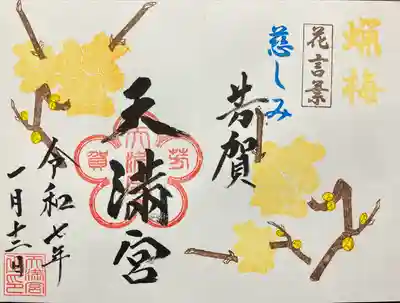 蝋梅
花言葉
慈しみ
芳賀
天満宮
令和七年
一月十二日